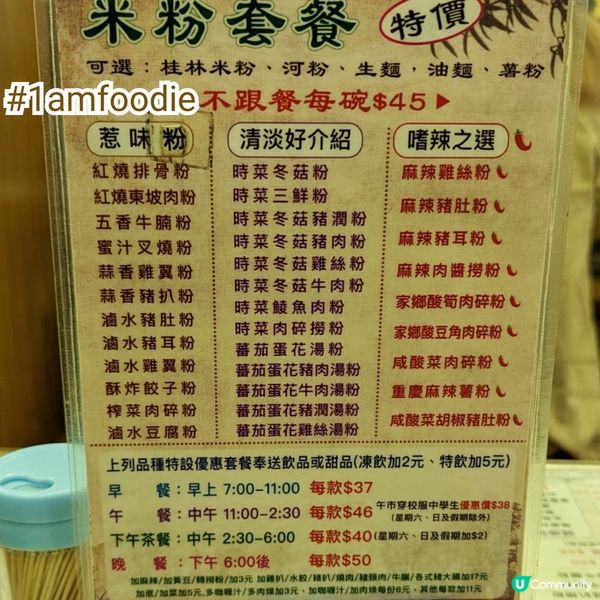 米粉套餐 特價
可選：桂林米粉、河粉、生麵，油麵、薯粉
#1amfoodie
不跟餐每碗$45
惹味粉
紅燒排骨粉
紅燒東坡肉粉
五香牛腩粉
蜜汁叉燒粉
蒜香雞翼粉
蒜香豬扒粉
滷水豬肚粉
滷水豬耳粉
滷水雞翼粉
酥炸餃子粉
榨菜肉碎粉
滷水豆腐粉
清淡好介紹
時菜冬菇粉
時菜三鮮粉
時菜冬菇豬潤粉
時菜冬菇豬肉粉
時菜冬菇雞絲粉
時菜冬菇牛肉粉
時菜鯪魚肉粉
時菜肉碎撈粉
蕃茄蛋花湯粉
蕃茄蛋花豬肉湯粉
蕃茄蛋花牛肉湯粉
蕃茄蛋花豬潤湯粉
蕃茄蛋花雞絲湯粉
嗜辣之選
麻辣雞絲粉
麻辣豬肚粉
麻辣豬耳粉
麻辣肉醬撈粉
家鄉酸筍肉碎粉
家鄉酸豆角肉碎粉
咸酸菜肉碎粉
重慶麻辣薯粉
咸酸菜胡椒豬肚粉
上列品種特設優惠套餐奉送飲品或甜品(凍飲加2元、特飲加5元)
早 餐：早上 7:00-11:00 每款$37
午 餐：中午 11:00-2:30 每款$46 午市穿校服中學生優惠價$38 (星期六、日及假期除外)
下午茶餐：中午 2:30-6:00 每款$40 (星期六、日及假期加$2)
晚 餐：下午 6:00後 每款$50
加麻辣/加黃豆/轉撈粉/加3元 加雞扒/水餃/豬扒/燒肉/豬頸肉/牛腩/各式豬大腸加17元
加底/加菜加5元,多咖喱汁/多肉燥加3元, 加咖喱汁/加肉燥每份6元, 其他每款加11元
U Community